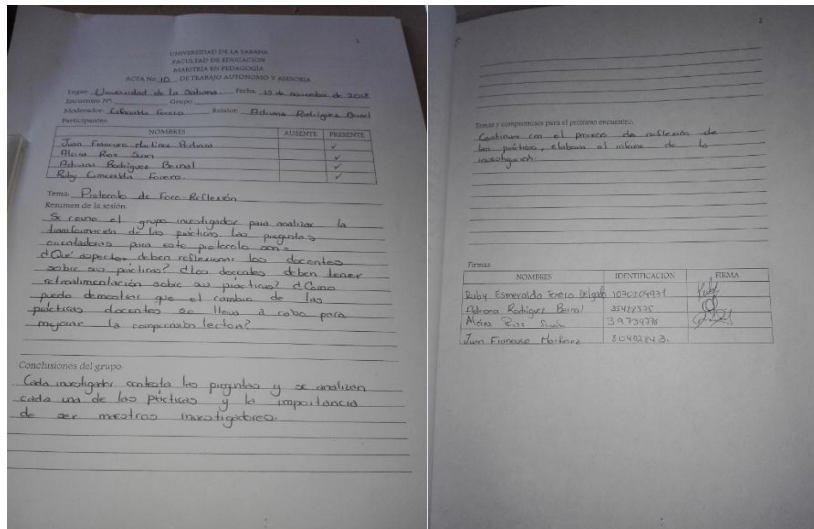 1
UNIVERSIDAD DE LA SABANA
FACULTAD DE EDUCACIÓN
MAESTRÍA EN PEDAGOGÍA
ACTA No. 10 DE TRABAJO AUTÓNOMO Y ASESORIA
Lugar: Universidad de la Sabana Fecha: 13 de noviembre de 2018
Encuentro Nº Grupo
Moderador: Esmeralda Forero Relator: Adriana Rodríguez Bernal
Participantes:
NOMBRES AUSENTE PRESENTE
Juan Francisco Martínez ✓
Alcira Rios ✓
Adriana Rodríguez Bernal ✓
Ruby Esmeralda Forero. ✓
Tema: Protocolo de Foro-Reflexión
Resumen de la sesión:
Se reune el grupo investigador para analizar la
transformación de las prácticas las preguntas
orientadoras para este protocolo son:
¿Qué aspectos deben reflexionar los docentes
sobre sus prácticas? ¿Los docentes deben tener
retroalimentación sobre sus prácticas? ¿Como
puedo demostrar que el cambio de las
prácticas docentes se lleva a cabo para
mejorar la comprensión lectora?
Conclusiones del grupo
Cada investigador contesta las preguntas y se analizan
cada una de las prácticas y la importancia
de ser maestros investigadores.
2
Temas y compromisos para el próximo encuentro.
Continuar con el proceso de reflexión de
las prácticas, elaborar el informe de la
investigación.
Firmas
NOMBRES IDENTIFICACIÓN FIRMA
Ruby Esmeralda Forero Delgado 1070304971
Adriana Rodriguez Bernal
Alcira Rios
Juan Francisco Martinez